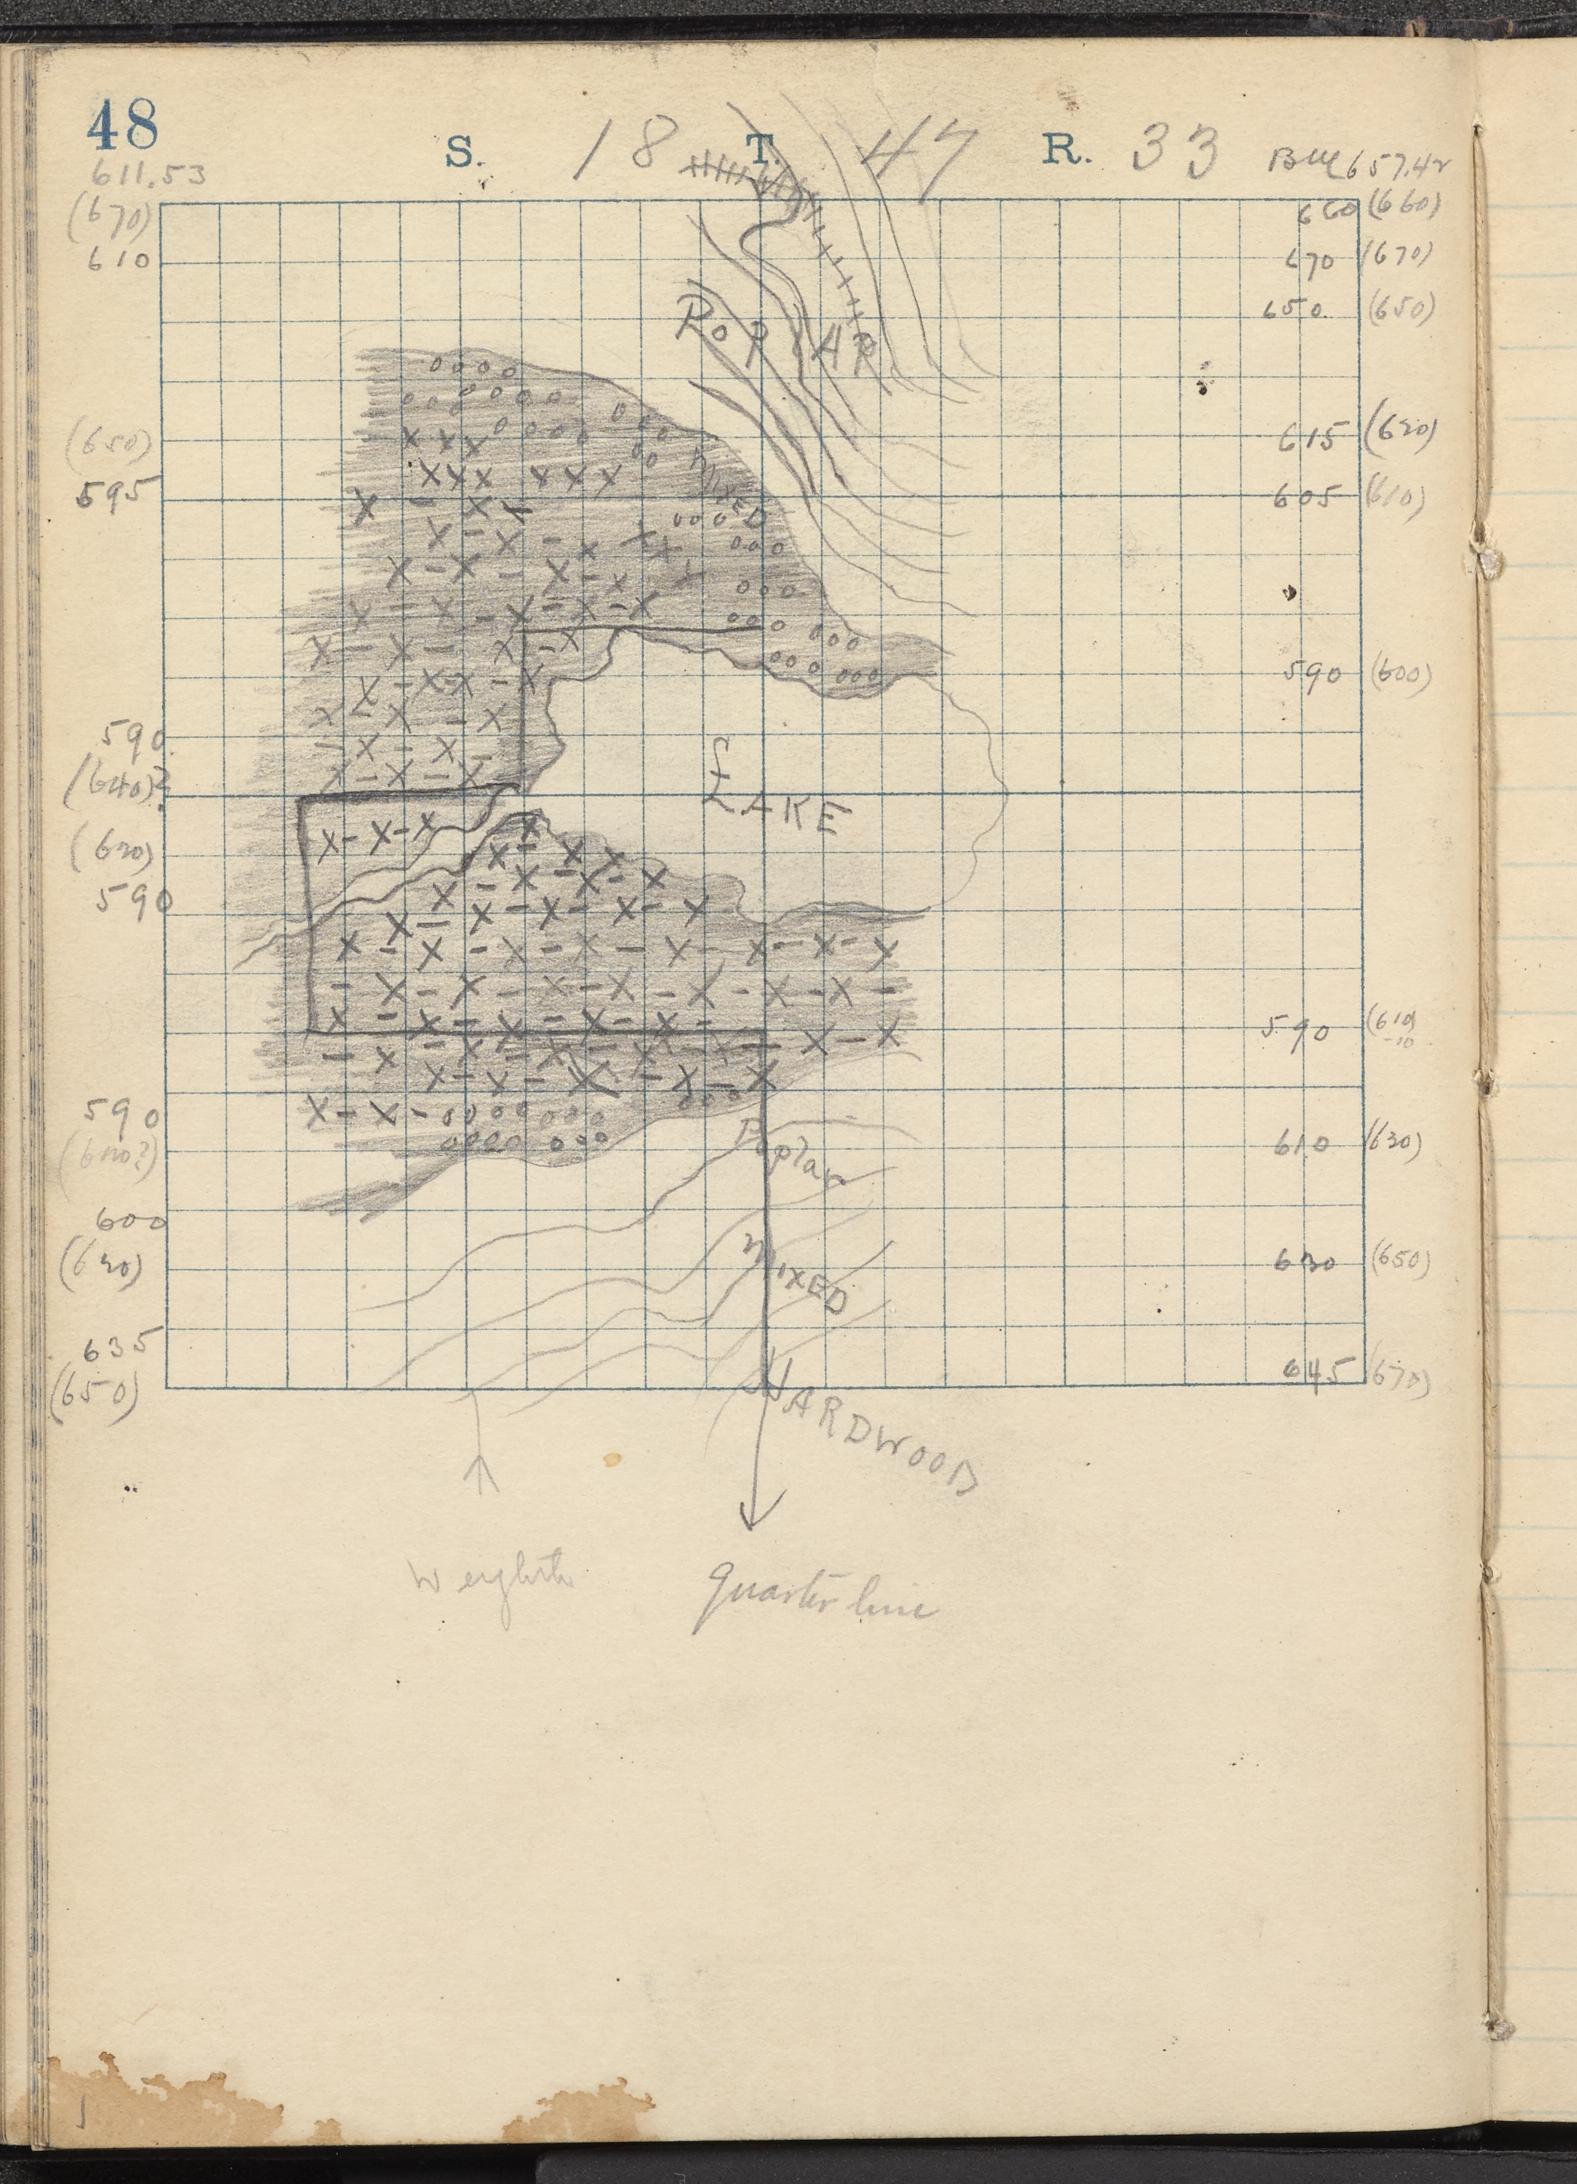 48
S. 18 T. 47 R. 33 BM 657.42
611.53
(670)
610
660 (660)
670 (670)
650 (650)
POPLAR
(650)
595
615 (620)
MIXED
605 (610)
590 (600)
590
(640)?
LAKE
(620)
590
590 (610)
-10
590
(600?)
Poplar
610 (630)
600
(620)
MIXED
630 (650)
635
(650)
645 (670)
HARDWOOD
W eighth
Quarter line